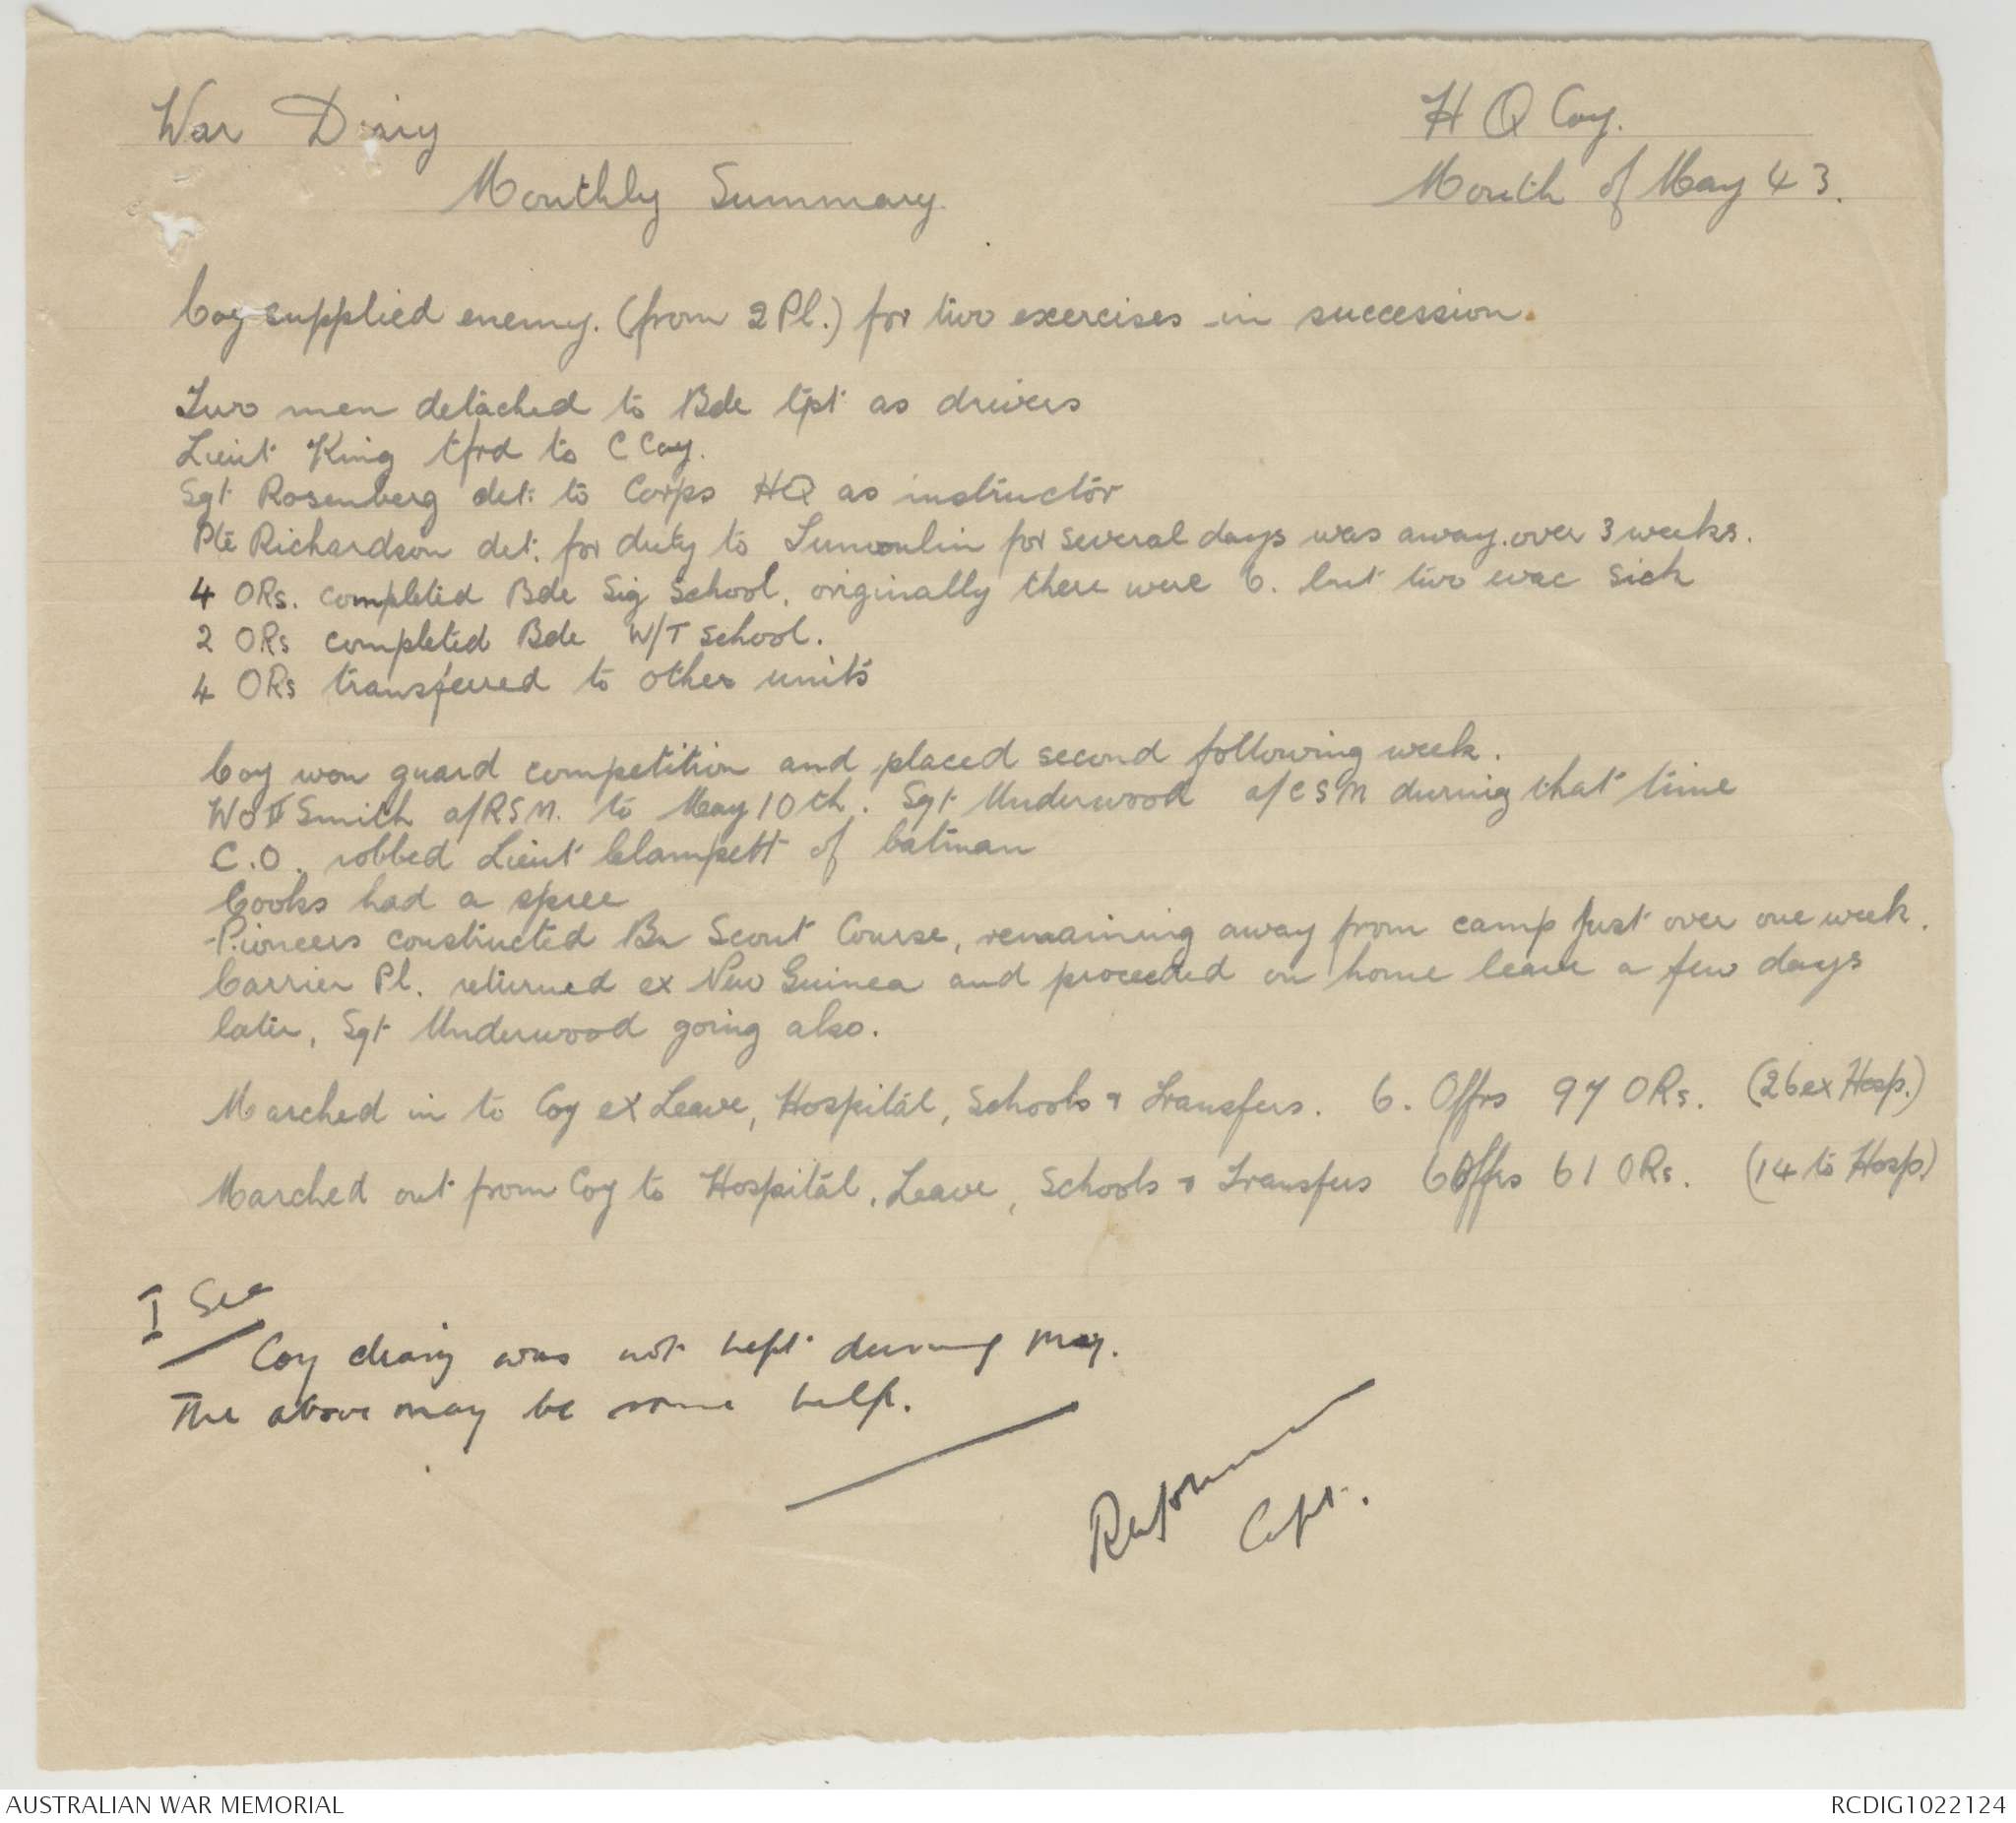 War Diary
H Q Coy.
Monthly Summary
Month of May 43.
Coy supplied enemy. (from 2 Pl.) for two exercises in succession.
Two men detached to Bde tpt as drivers
Lieut King tfrd to C Coy.
Sgt Rosenberg det. to Corps HQ as instructor
Pte Richardson det. for duty to Tumoulin for several days was away. over 3 weeks.
4 ORs. completed Bde Sig School, originally there were 6. but two evac sick
2 ORs completed Bde W/T School.
4 ORs transferred to other units
Coy won guard competition and placed second following week.
WO II Smith a/RSM. to May 10th. Sgt Underwood a/CSM during that time
C.O. robbed Lieut Clampett of batman
Cooks had a spree
Pioneers constructed Bn Scout Course, remaining away from camp just over one week.
Carrier Pl. returned ex New Guinea and proceeded on home leave a few days
later, Sgt Underwood going also.
Marched in to Coy ex Leave, Hospital, Schools & Transfers. 6. Offrs 97 ORs. (26 ex Hosp.)
Marched out from Coy to Hospital, Leave, Schools & Transfers 6 Offrs 61 ORs. (14 to Hosp)
I Sec
Coy diary was not kept during May.
The above may be some help.
Capt.
AUSTRALIAN WAR MEMORIAL
RCDIG1022124